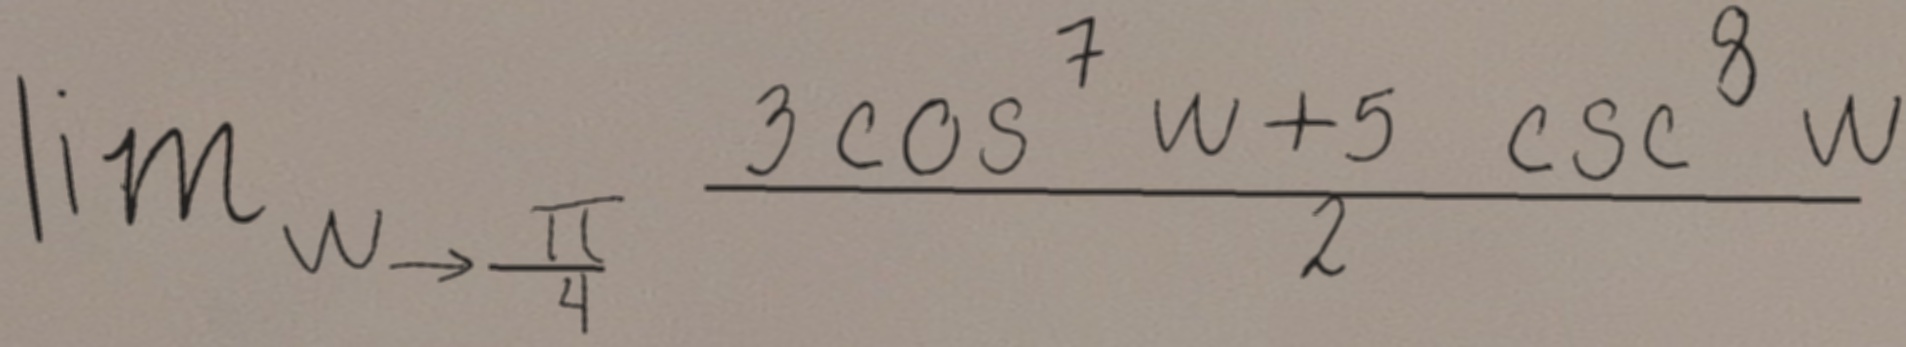 \lim_{w \to \frac{\pi}{4}} \frac{3 \cos^7 w + 5 \csc^8 w}{2}